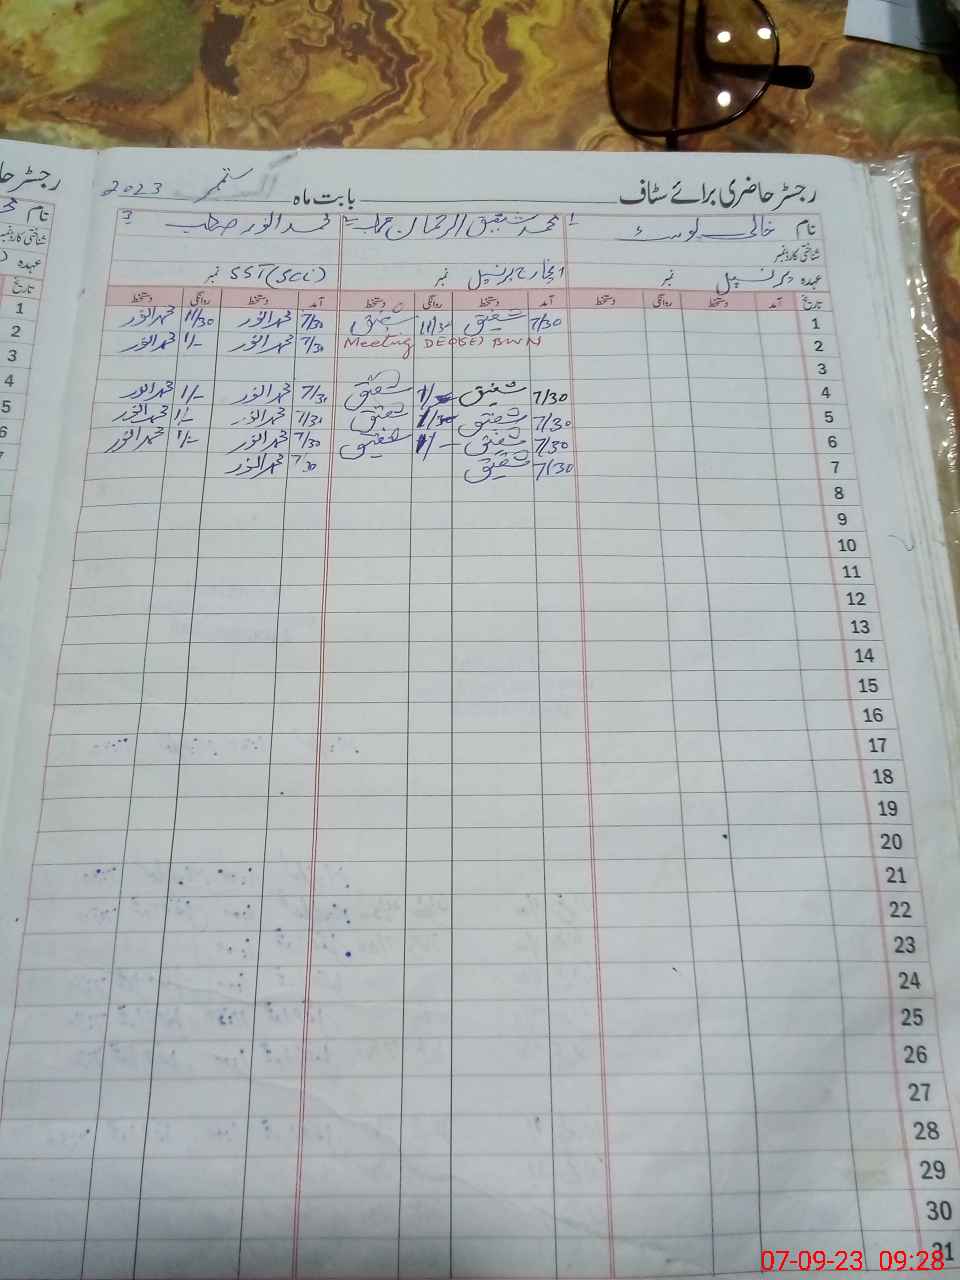 رجسٹر حاضری برائے سٹاف بابت ماہ ستمبر 2023
نام خالی پوسٹ 1 محمد شفیق الرحمان صاحب 2 محمد انور صاحب 3
شناختی کارڈ نمبر
عہدہ پرنسپل نمبر انچارج پرنسپل نمبر SST (Sci) نمبر
تاریخ آمد دستخط روانگی دستخط آمد دستخط روانگی دستخط آمد دستخط روانگی دستخط
1 7/30 شفیق 11/30 شفیق 7/30 محمد انور 11/30 محمد انور
2 Meeting DEO(SE) BWN 7/30 محمد انور 1/- محمد انور
3
4 7/30 شفیق شفیق 7/30 محمد انور 1/- محمد انور
5 7/30 شفیق شفیق 7/30 محمد انور 1/- محمد انور
6 7/30 شفیق 1/- شفیق 7/30 محمد انور 1/- محمد انور
7 7/30 شفیق 7/30 محمد انور
8
9
10
11
12
13
14
15
16
17
18
19
20
21
22
23
24
25
26
27
28
29
30
31
07-09-23 09:28
رجسٹر حا
نام
شناختی کارڈ نمبر
عہدہ
تاریخ
1
2
3
4
5
6
7